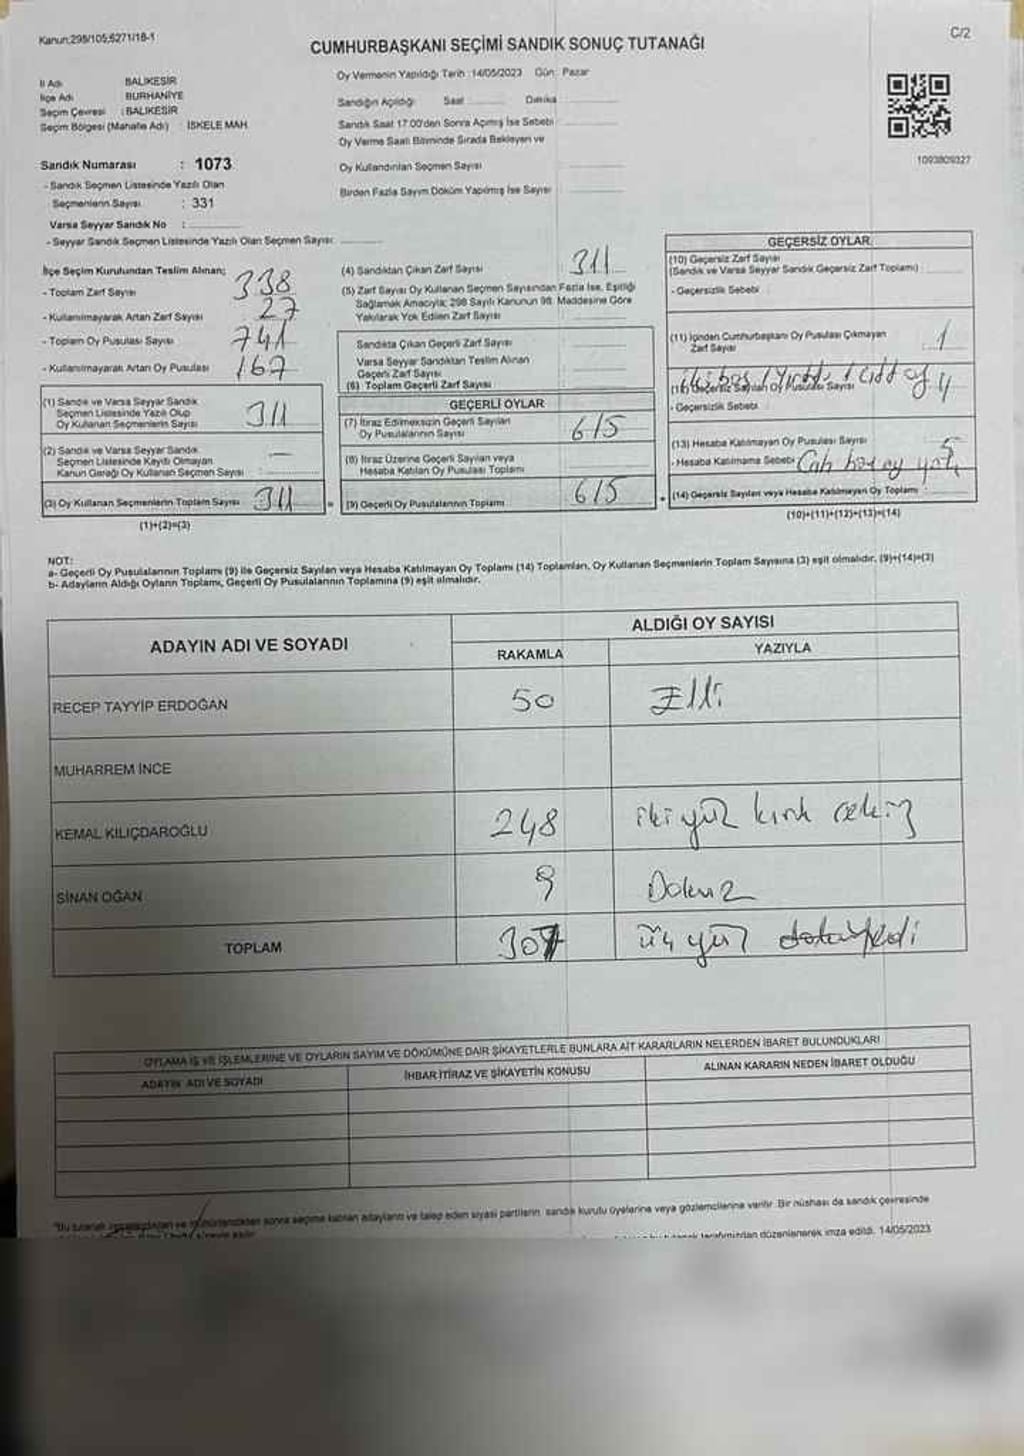 Kanun:298/105;6271/18-1
C/2
CUMHURBAŞKANI SEÇİMİ SANDIK SONUÇ TUTANAĞI
İl Adı BALIKESİR
İlçe Adı BURHANİYE
Seçim Çevresi : BALIKESİR
Seçim Bölgesi (Mahalle Adı) : İSKELE MAH.
Sandık Numarası : 1073
- Sandık Seçmen Listesinde Yazılı Olan
Seçmenlerin Sayısı : 331
Varsa Seyyar Sandık No :
- Seyyar Sandık Seçmen Listesinde Yazılı Olan Seçmen Sayısı:
Oy Vermenin Yapıldığı Tarih :14/05/2023 Gün: Pazar
Sandığın Açıldığı Saat Dakika
Sandık Saat 17.00'den Sonra Açılmış İse Sebebi
Oy Verme Saati Bitiminde Sırada Bekleyen ve
Oy Kullandırılan Seçmen Sayısı
Birden Fazla Sayım Döküm Yapılmış İse Sayısı
1093809327
İlçe Seçim Kurulundan Teslim Alınan;
- Toplam Zarf Sayısı 338
- Kullanılmayarak Artan Zarf Sayısı 27
- Toplam Oy Pusulası Sayısı 741
- Kullanılmayarak Artan Oy Pusulası 167
(1) Sandık ve Varsa Seyyar Sandık
Seçmen Listesinde Yazılı Olup
Oy Kullanan Seçmenlerin Sayısı 311
(2) Sandık ve Varsa Seyyar Sandık
Seçmen Listesinde Kayıtlı Olmayan
Kanun Gereği Oy Kullanan Seçmen Sayısı —
(3) Oy Kullanan Seçmenlerin Toplam Sayısı 311
(1)+(2)=(3)
(4) Sandıktan Çıkan Zarf Sayısı 311
(5) Zarf Sayısı Oy Kullanan Seçmen Sayısından Fazla İse, Eşitliği
Sağlamak Amacıyla; 298 Sayılı Kanunun 98. Maddesine Göre
Yakılarak Yok Edilen Zarf Sayısı
Sandıkta Çıkan Geçerli Zarf Sayısı
Varsa Seyyar Sandıktan Teslim Alınan
Geçerli Zarf Sayısı
(6) Toplam Geçerli Zarf Sayısı
GEÇERLİ OYLAR
(7) İtiraz Edilmeksizin Geçerli Sayılan
Oy Pusulalarının Sayısı 615
(8) İtiraz Üzerine Geçerli Sayılan veya
Hesaba Katılan Oy Pusulası Toplamı
(9) Geçerli Oy Pusulalarının Toplamı 615
GEÇERSİZ OYLAR
(10) Geçersiz Zarf Sayısı
(Sandık ve Varsa Seyyar Sandık Geçersiz Zarf Toplamı)
- Geçersizlik Sebebi
(11) İçinden Cumhurbaşkanı Oy Pusulası Çıkmayan
Zarf Sayısı 1
Geçersiz Sayılan Oy Pusulası Sayısı 4
- Geçersizlik Sebebi
(13) Hesaba Katılmayan Oy Pusulası Sayısı 5
- Hesaba Katılmama Sebebi
(14) Geçersiz Sayılan veya Hesaba Katılmayan Oy Toplamı :
(10)+(11)+(12)+(13)=(14)
NOT:
a- Geçerli Oy Pusulalarının Toplamı (9) ile Geçersiz Sayılan veya Hesaba Katılmayan Oy Toplamı (14) Toplamları, Oy Kullanan Seçmenlerin Toplam Sayısına (3) eşit olmalıdır. (9)+(14)=(3)
b- Adayların Aldığı Oyların Toplamı, Geçerli Oy Pusulalarının Toplamına (9) eşit olmalıdır.
ADAYIN ADI VE SOYADI ALDIĞI OY SAYISI
RAKAMLA YAZIYLA
RECEP TAYYİP ERDOĞAN 50 Elli
MUHARREM İNCE
KEMAL KILIÇDAROĞLU 248 ikiyüz kırk sekiz
SİNAN OĞAN 9 Dokuz
TOPLAM 307 üç yüz
OYLAMA İŞ VE İŞLEMLERİNE VE OYLARIN SAYIM VE DÖKÜMÜNE DAİR ŞİKAYETLERLE BUNLARA AİT KARARLARIN NELERDEN İBARET BULUNDUKLARI
ADAYIN ADI VE SOYADI İHBAR İTİRAZ VE ŞİKAYETİN KONUSU ALINAN KARARIN NEDEN İBARET OLDUĞU
sonra seçime katılan adayların ve talep eden siyasi partilerin sandık kurulu üyelerine veya gözlemcilerine verilir. Bir nüshası da sandık çevresinde
tarafımızdan düzenlenerek imza edildi. 14/05/2023